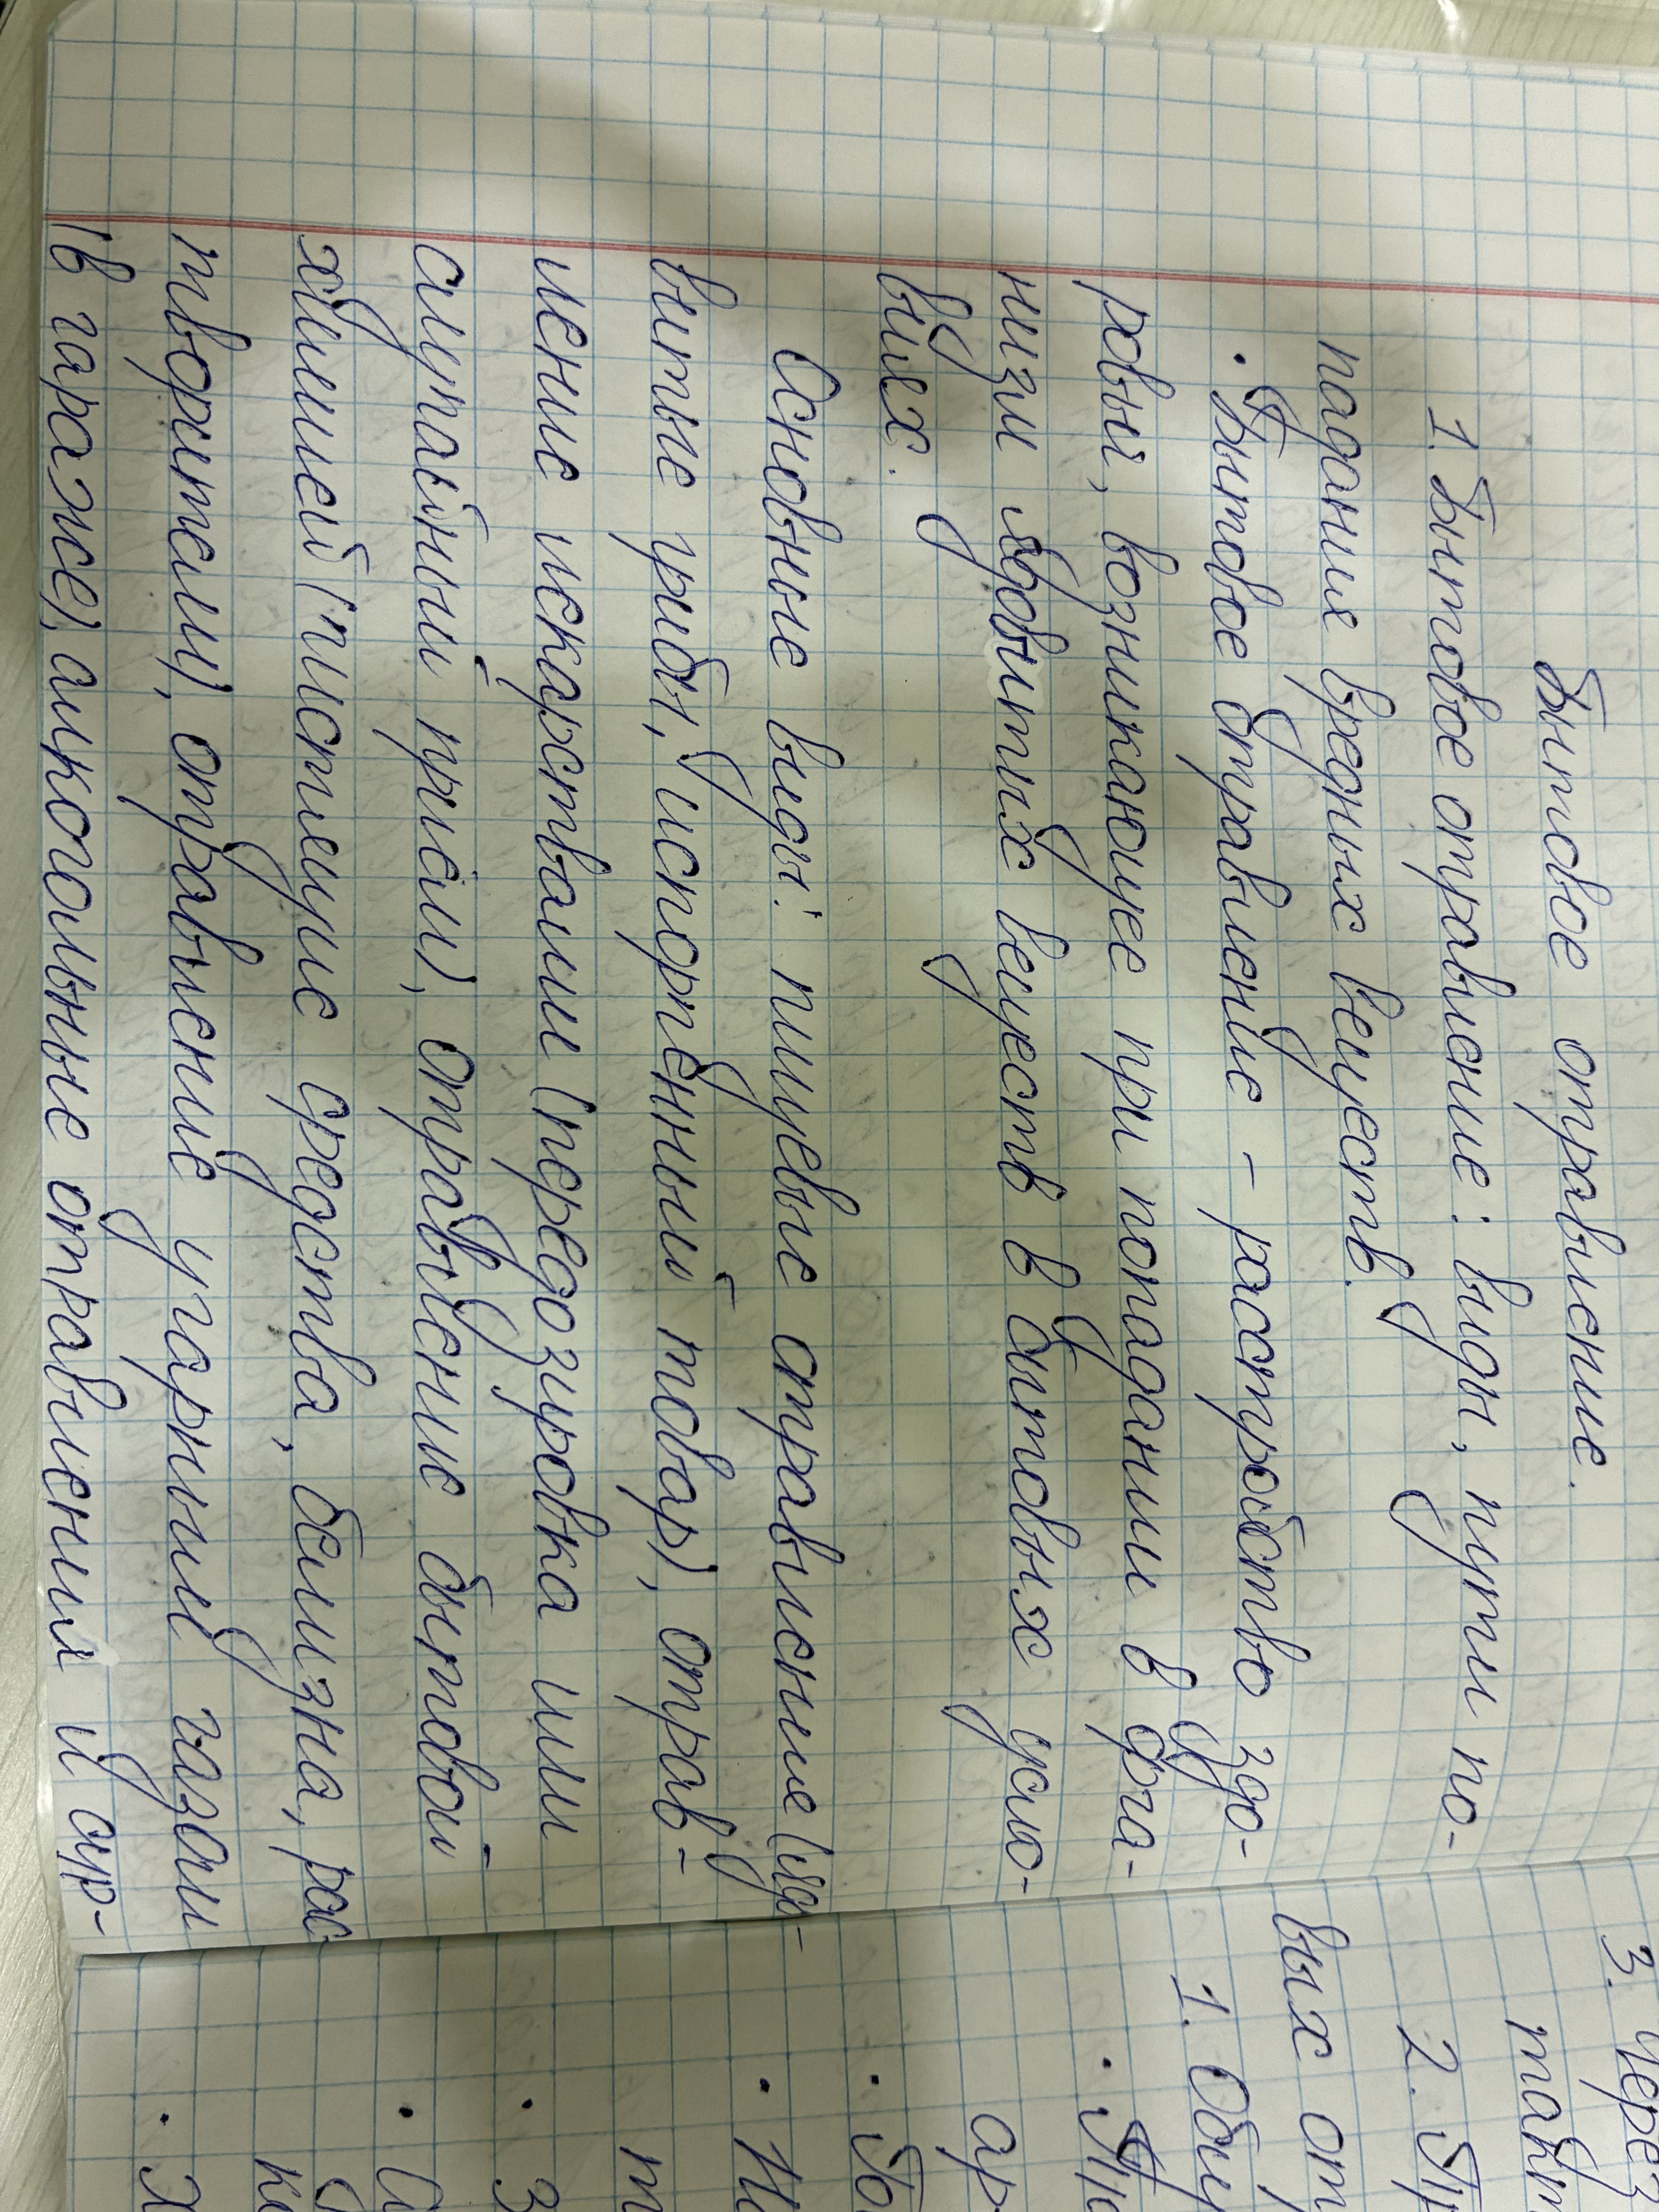 Бытовое отравление.
1. Бытовое отравление: виды, пути по-
падания вредных веществ.
· Бытовое отравление - расстройство здо-
ровья, возникающее при попадании в орга-
низм ядовитых веществ в бытовых усло-
виях.
Основные виды: пищевые отравление (ядо-
витые грибы, испорченный товар), отрав-
ление лекарствами (передозировка или
случайный приём), отравление бытовой
химией (чистящие средства, белизна, рас
творители), отравление угарным газом
(в гараже), алкогольные отравления и др-
3. Через
2. Пр
вых от
1. Общ